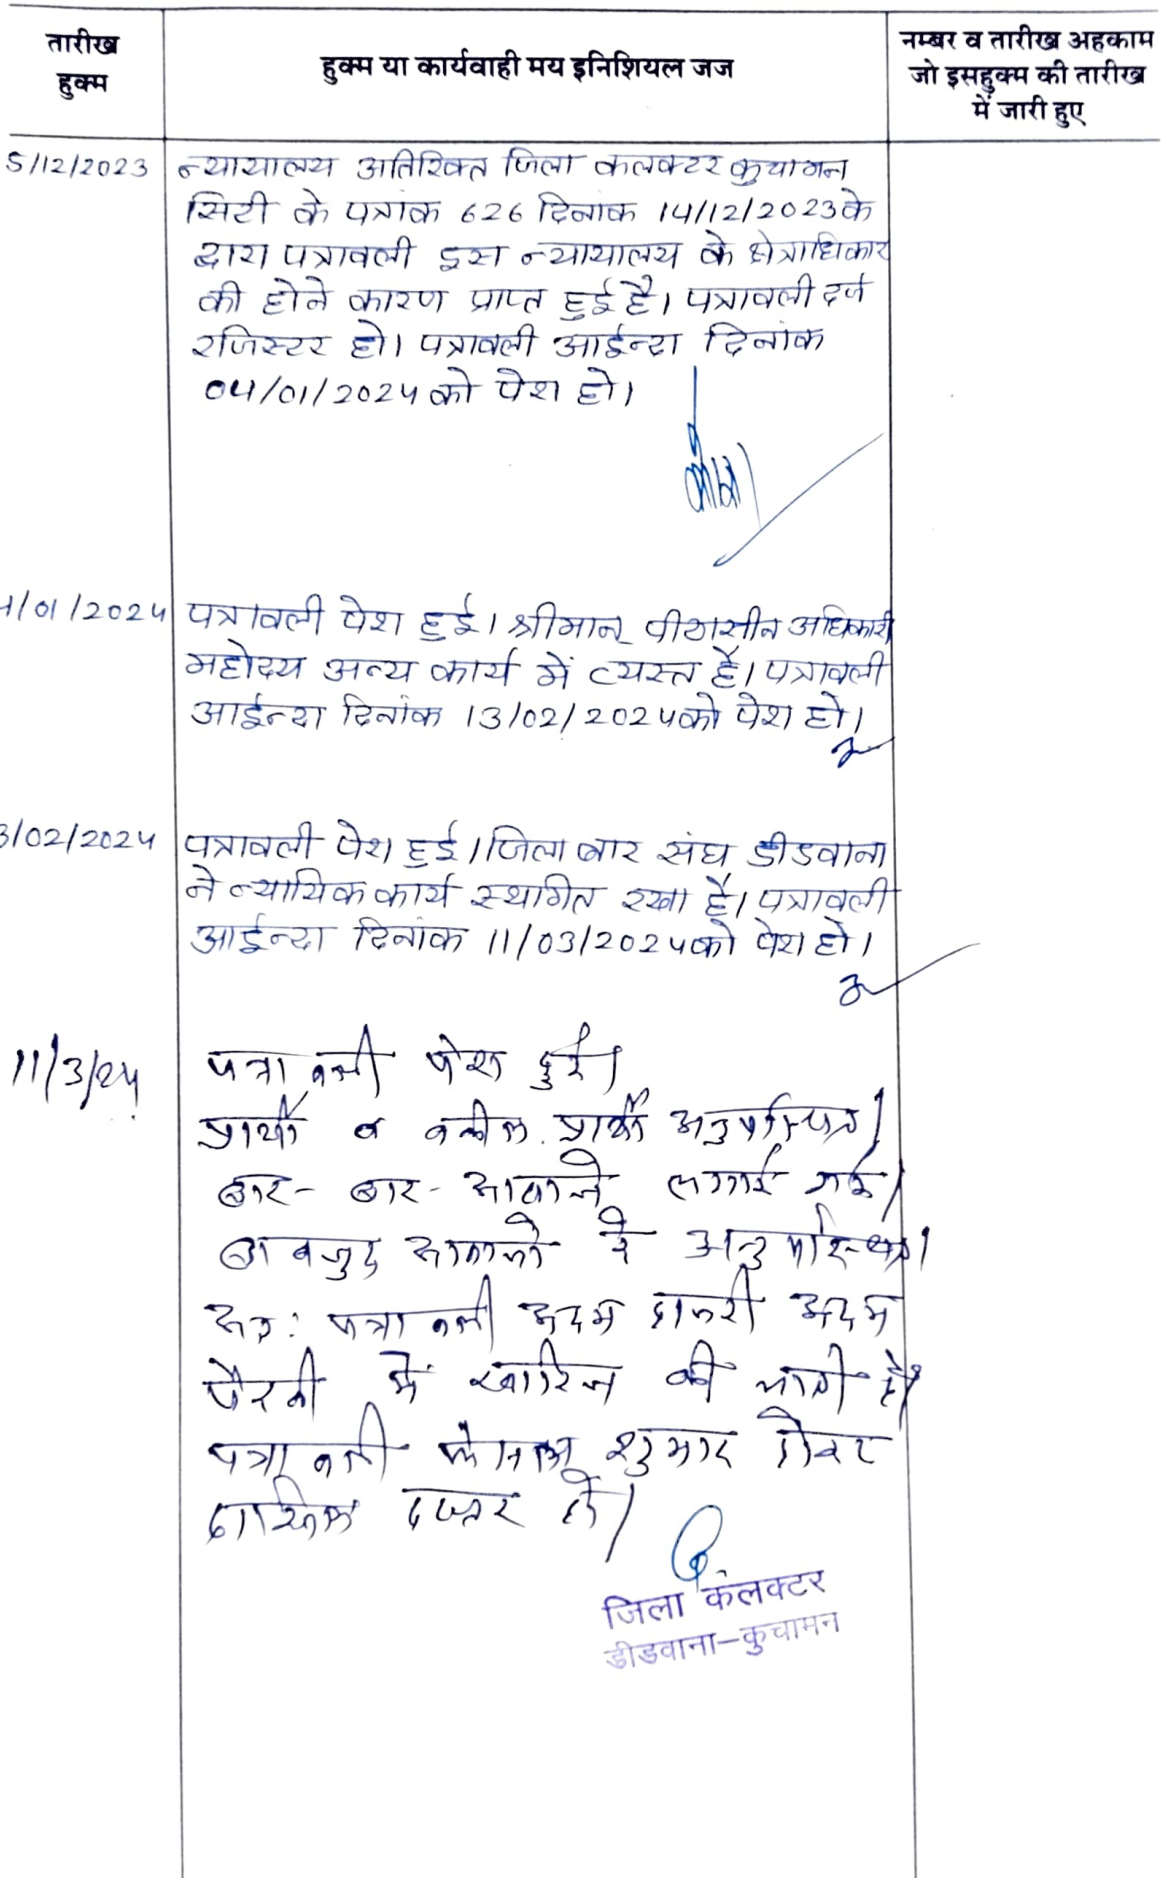 तारीख
हुक्म
हुक्म या कार्यवाही मय इनिशियल जज
नम्बर व तारीख अहकाम
जो इसहुक्म की तारीख
में जारी हुए
5/12/2023
न्यायालय अतिरिक्त जिला कलक्टर कुचामन
सिटी के पत्रांक 626 दिनांक 14/12/2023 के
द्वारा पत्रावली इस न्यायालय के क्षेत्राधिकार
की होने कारण प्राप्त हुई है। पत्रावली दर्ज
रजिस्टर हो। पत्रावली आईन्दा दिनांक
04/01/2024 को पेश हो।
4/01/2024
पत्रावली पेश हुई। श्रीमान् पीठासीन अधिकारी
महोदय अन्य कार्य में व्यस्त है। पत्रावली
आईन्दा दिनांक 13/02/2024 को पेश हो।
3/02/2024
पत्रावली पेश हुई। जिला बार संघ डीडवाना
ने न्यायिक कार्य स्थगित रखा है। पत्रावली
आईन्दा दिनांक 11/03/2024 को पेश हो।
11/3/24
पत्रावली पेश हुई।
प्रार्थी व वकील प्रार्थी अनुपस्थित।
बार-बार-आवाजे लगाई गई।
बावजुद आवाजो के अनुपस्थित।
अतः पत्रावली अदम हाजरी अदम
पैरवी में खारिज की जाती है।
पत्रावली फैसल शुमार होकर
दाखिल दफ्तर हो।
जिला कलक्टर
डीडवाना-कुचामन